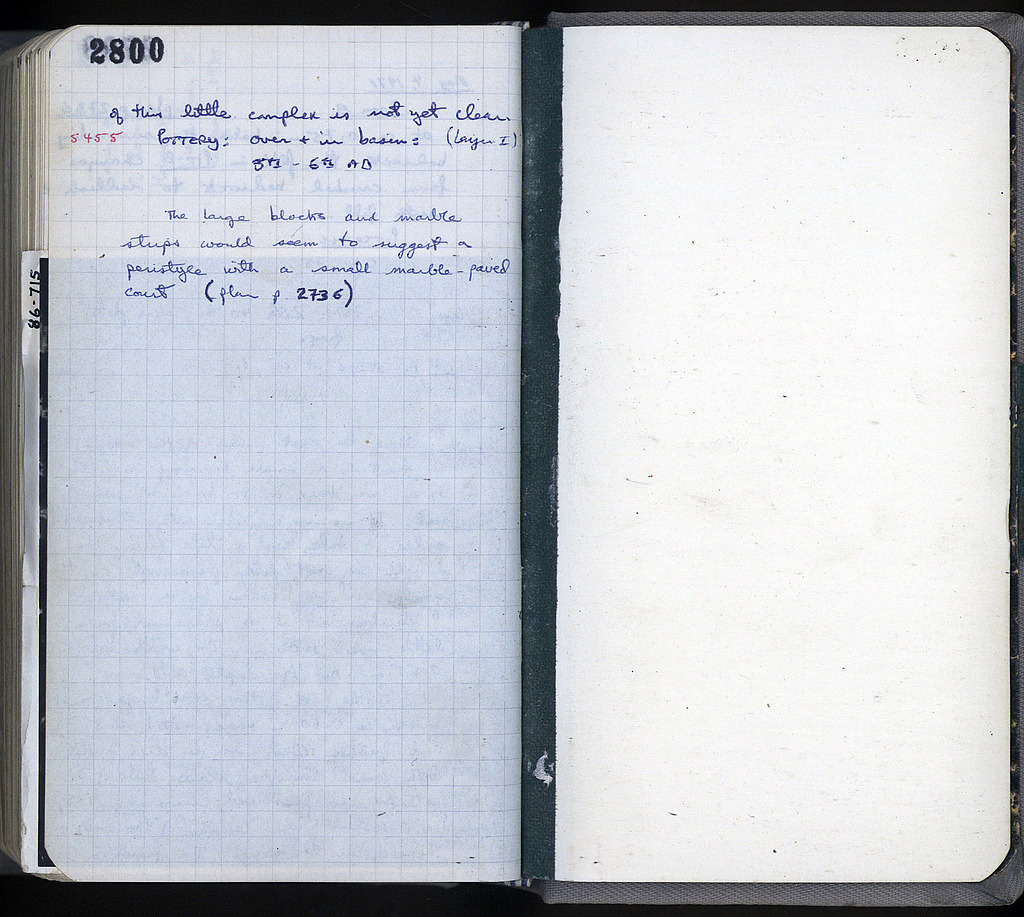 2800
of this little complex is not yet clear
S455 POTTERY: over + in basin: (Layer I)
5TH - 6TH AD
The large blocks and marble
strips would seem to suggest a
peristyle with a small marble-paved
court (plan p 2736)
86-715